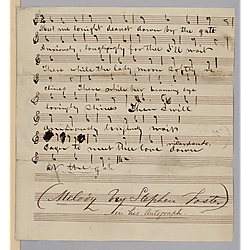 Meet me tonight dearest down by the gate
Anxiously, longingly for thee I'll wait
There while the lady moon softly
shines There while her beaming eye
lovingly shines There I will
longingly wait
Eager to meet thee love down
at the gate
(Melody by Stephen Foster)
in his autograph.